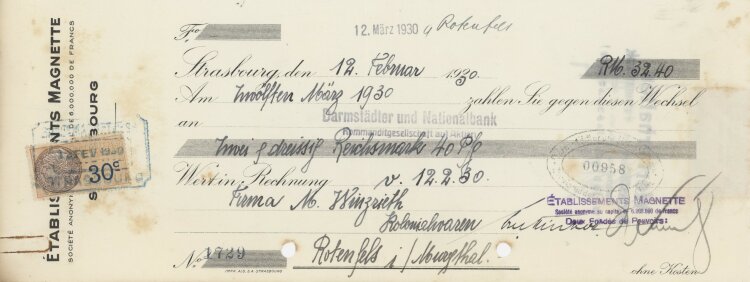 ÉTABLISSEMENTS MAGNETTE
SOCIÉTÉ ANONYME
DE 6.000.000 DE FRANCS
STRASBOURG
12 FEV 1930
30c
Fr.
12. März 1930 Rotenfels
Strasbourg, den 12. Februar 1930.
RM. 32.40
Am zwölften März 1930 zahlen Sie gegen diesen Wechsel
an Darmstädter und Nationalbank
Kommanditgesellschaft auf Aktien
zwei & dreissig Reichsmark 40 Pfg
Wert in Rechnung v. 12.2.30.
00958
Firma M. Winzrieth
Kolonialwaren
ÉTABLISSEMENTS MAGNETTE
Société anonyme au capital de 6.000.000 de francs
Deux Fondés de Pouvoirs:
No 1729
Rotenfels i/Murgthal.
IMPR. ALS. D.A. STRASBOURG
ohne Kosten